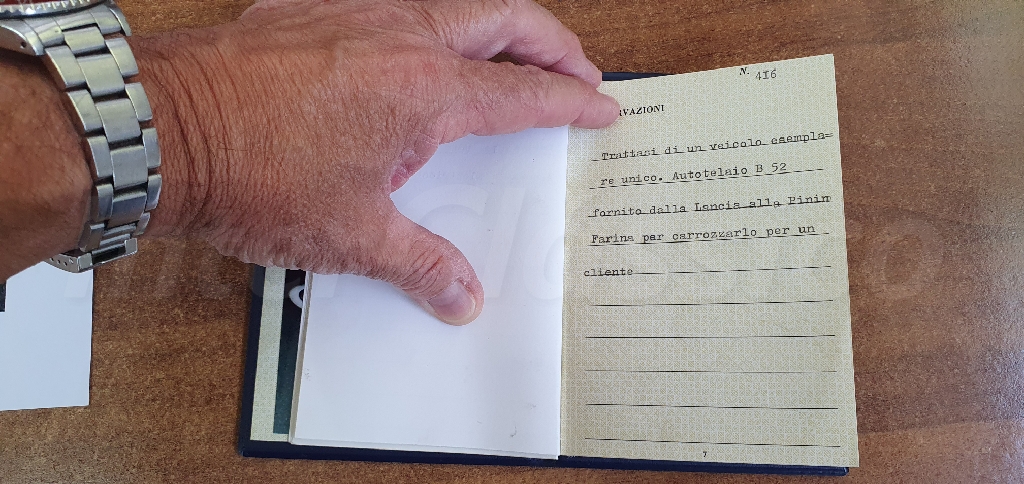 N. 416
RVAZIONI
Trattasi di un veicolo esempla=
re unico. Autotelaio B 52
fornito dalla Lancia alla Pinin
Farina per carrozzarlo per un
cliente
7